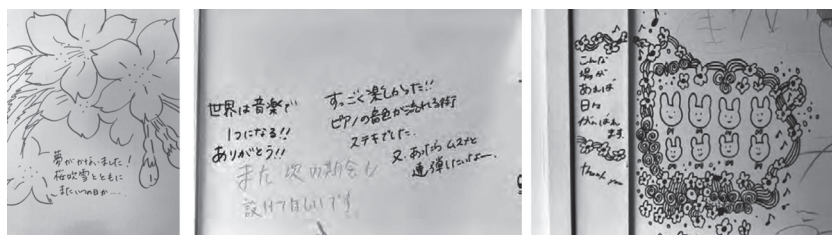 夢がかないました!
桜吹雪とともに
またいつの日か……
世界は音楽で
1つになる!!
ありがとう!!
すっごく楽しかった!!
ピアノの音色が流れる街
ステキでした。
又、あったらムスメと
連弾したいなー。
また次の機会も
設けてほしいです!
こんな
場が
あれば
日々
がんばれ
ます。
thank you